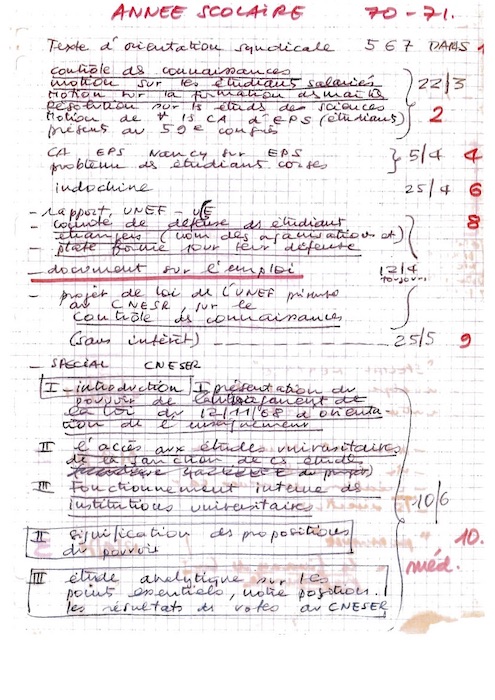 ANNEE SCOLAIRE 70-71.
Texte d'orientation syndicale 5 6 7 MARS 1
contrôle des connaissances
motion sur les étudiants salariés 22/3
motion sur la formation des maîtres
résolution sur les études des sciences
Motion de 15 CA d'EPS (étudiants) 2
présent au 59e congrès
CA EPS Nancy sur EPS 5/4 4
problème des étudiants corses
indochine 25/4 6
- rapport UNEF - UE
- comité de défense des étudiants 8
étrangers (nom des organisations et)
- plate forme pour leur défense
- document sur l'emploi 12/4
toujours
- projet de loi de l'UNEF présenté
au CNESER, sur le
Contrôle des connaissances
(sans intérêt) 25/5 9
- SPECIAL CNESER
I - introduction I présentation du
pouvoir de
la loi du 12/11/68 d'orienta-
tion de l'enseignement
II l'accès aux études universitaires
de la sanction de ces études
III Fonctionnement interne des
institutions universitaires. 10/6
II signification des propositions 10.
du pouvoir méd.
III étude analytique sur les
points essentiels, notre position.
les résultats des votes au CNESER